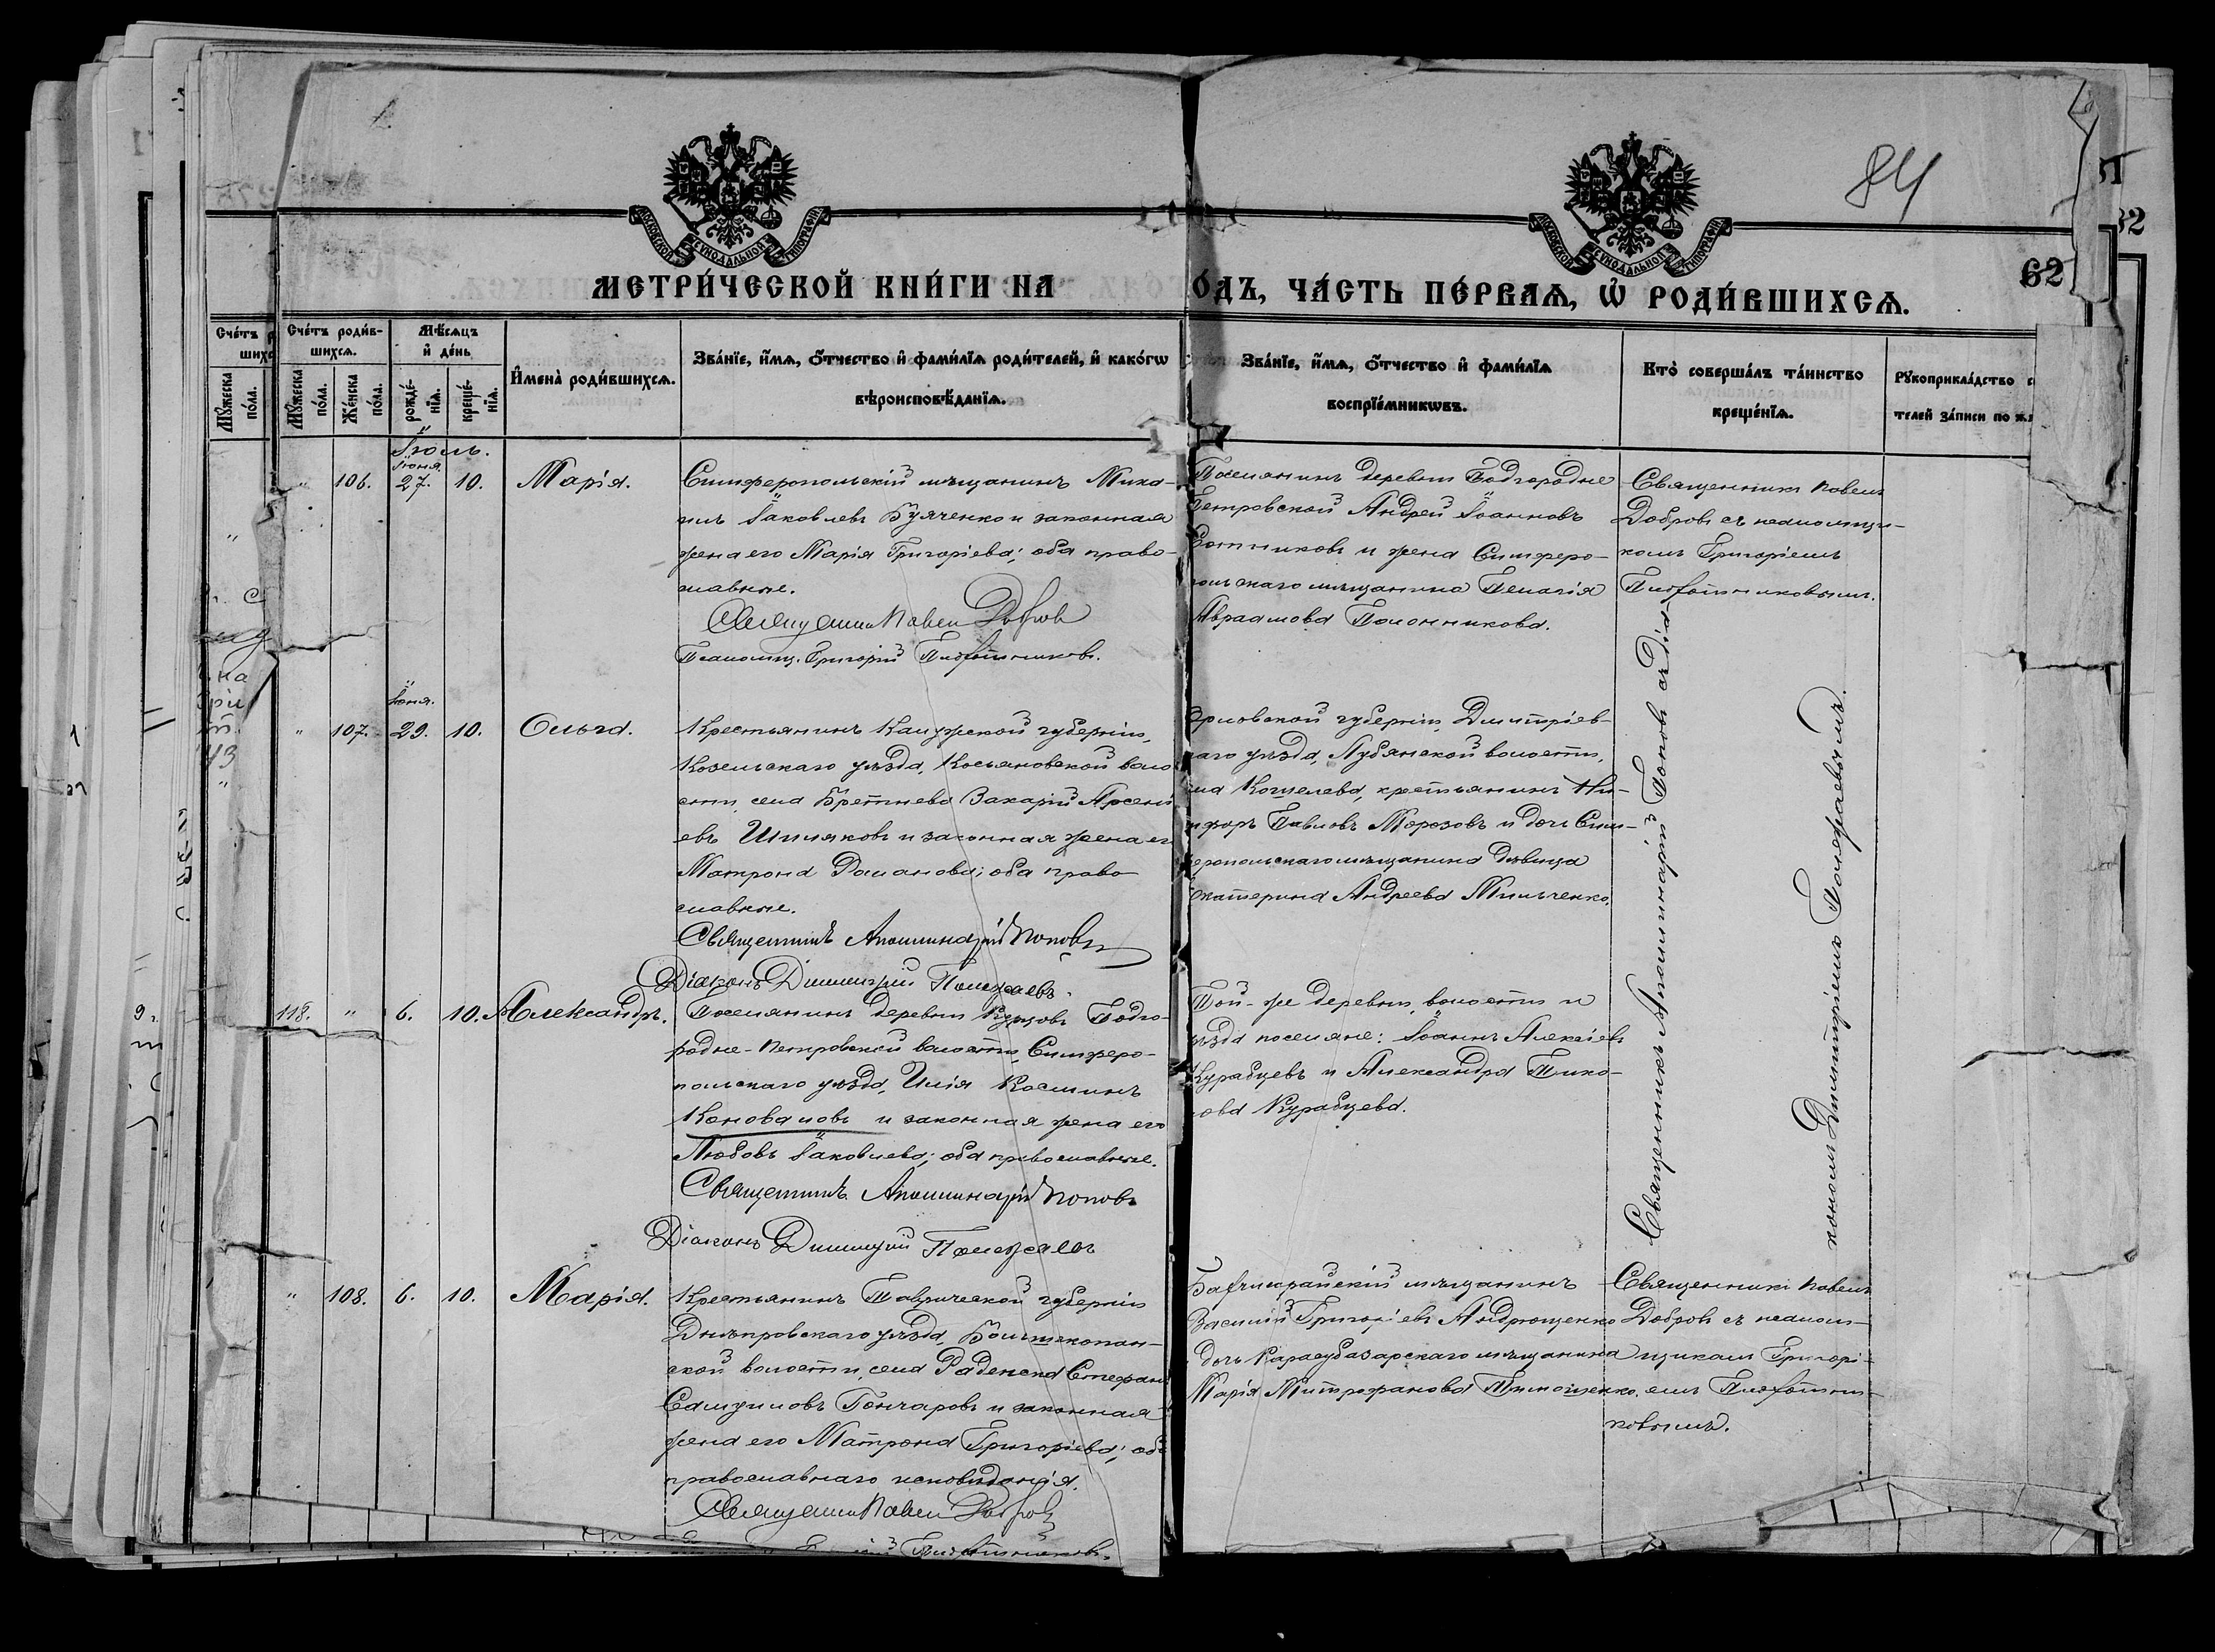 84
МОСКОВСКОЙ СѴНОДАЛЬНОЙ ТИПОГРАФІИ
МОСКОВСКОЙ СѴНОДАЛЬНОЙ ТИПОГРАФІИ
62
МЕТРИ́ЧЕСКОЙ КНИ́ГИ НА
О́ДЪ, ЧА́СТЬ ПЕ́РВАѦ, Ѡ҆ РОДИ́ВШИХСѦ.
Сче́тъ роди́в-
шихсѧ.
Мꙋ́жеска по́ла.
Же́нска по́ла.
Мѣ́сѧцъ
и҆ де́нь
рожде́-
нїѧ.
креще́-
нїѧ.
И҆мена̀ роди́вшихсѧ.
Зва́нїе, и҆́мѧ, ѻ҆́тчество и҆ фами́лїѧ роди́телей, и҆ како́гѡ
вѣроисповѣ́данїѧ.
Зва́нїе, и҆́мѧ, ѻ҆́тчество и҆ фами́лїѧ
воспрїе́мникѡвъ.
Кто̀ соверша́лъ та́инство
креще́нїѧ.
Рꙋкоприкла́дство
телей за́писи по
Іюль.
Іюня.
" 106. 27. 10. Марія.
Симферопольскій мѣщанинъ Миха-
илъ Іаковлевъ Буяченко и законная
жена его Марія Григоріева; оба право-
славные.
Священникъ Павелъ Добровъ
Псаломщ. Григорій
Поселянинъ деревни Подгородне
Петровской Андрей Іоанновъ
Сотниковъ и жена Симферо-
польскаго мѣщанина Пелагія
Авраамова Полонникова.
Священникъ Павелъ
Добровъ съ псаломщи-
комъ Григоріемъ
Іюня.
" 107. 29. 10. Ольга.
Крестьянинъ Калужской губерніи,
Козельскаго уѣзда, Косьяновской воло
сти, села Бретнева Захарій Арсені
евъ Шпиляковъ и законная жена ег
Матрона Романова; оба право
славные.
Священникъ Аполлинарій Поповъ
Діаконъ Димитрій Полежаевъ.
Орловской губерніи, Дмитріев-
скаго уѣзда, Лубянской волости,
села Кошелева, крестьянинъ Ни-
кифоръ Павловъ Морозовъ и дочь Сим-
феропольскаго мѣщанина дѣвица
Екатерина Андреева Мильченко.
Священникъ Аполлинарій Поповъ съ діа-
кономъ Димитріемъ Полежаевымъ.
118. " 6. 10. Александръ.
Поселянинъ деревни Курцовъ Подго-
родне-Петровской волости, Симферо-
польскаго уѣзда, Илія Косминъ
Коноваловъ и законная жена его
Любовь Іаковлева; оба православные.
Священникъ Аполлинарій Поповъ
Діаконъ Димитрій Полежаевъ
Той-же деревни, волости и
уѣзда поселяне: Іоаннъ Алексіевъ
Курабцевъ и Александра Тихо-
нова Курабцева.
" 108. 6. 10. Марія.
Крестьянинъ Таврической губерніи
Днѣпровскаго уѣзда, Большекопан-
ской волости, села Раденска Стефанъ
Самуиловъ Гончаровъ и законная
жена его Матрона Григоріева; оба
православнаго исповѣданія.
Священникъ Павелъ Добровъ
Бахчисарайскій мѣщанинъ
Василій Григоріевъ Андрющенко
дочь Карасубазарскаго мѣщанина
Марія Митрофанова Тимошенко.
Священникъ Павелъ
Добровъ съ псалом-
щикомъ Григорі-
емъ
ковымъ.